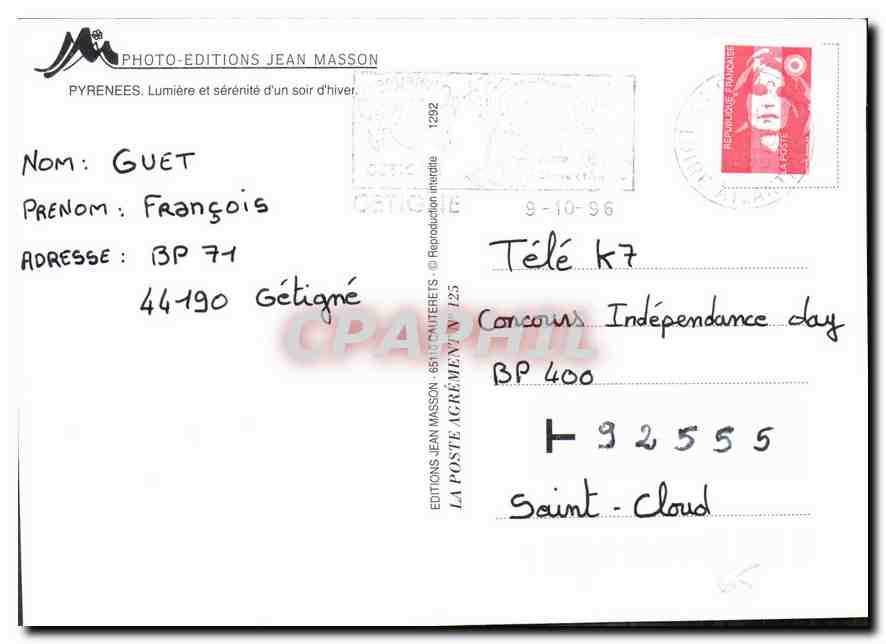 PHOTO-EDITIONS JEAN MASSON
PYRENEES. Lumière et sérénité d'un soir d'hiver.
NOM: GUET
PRENOM: François
ADRESSE: BP 71
44190 Gétigné
GETIGNE 9-10-96
EDITIONS JEAN MASSON - 65110 CAUTERETS - © Reproduction interdite 1292
LA POSTE AGRÉMENT N° 125
RÉPUBLIQUE FRANÇAISE
LA POSTE
Télé K7
Concours Indépendance day
BP 400
92555
Saint-Cloud
65
CPAPHIL